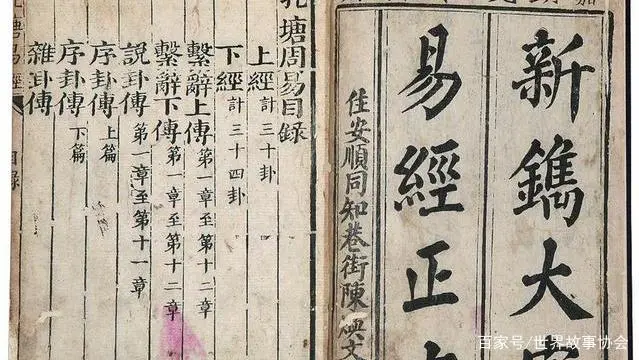 新鐫大
易經正
住安順同知巷街陳
塘周易目錄
上經計三十卦
下經計三十四卦
繫辭上傳第一章至第十二章
繫辭下傳第一章至第十二章
說卦傳第一章至第十一章
序卦傳上篇
序卦傳下篇
雜卦傳
易經
目錄
百家号/世界故事协会